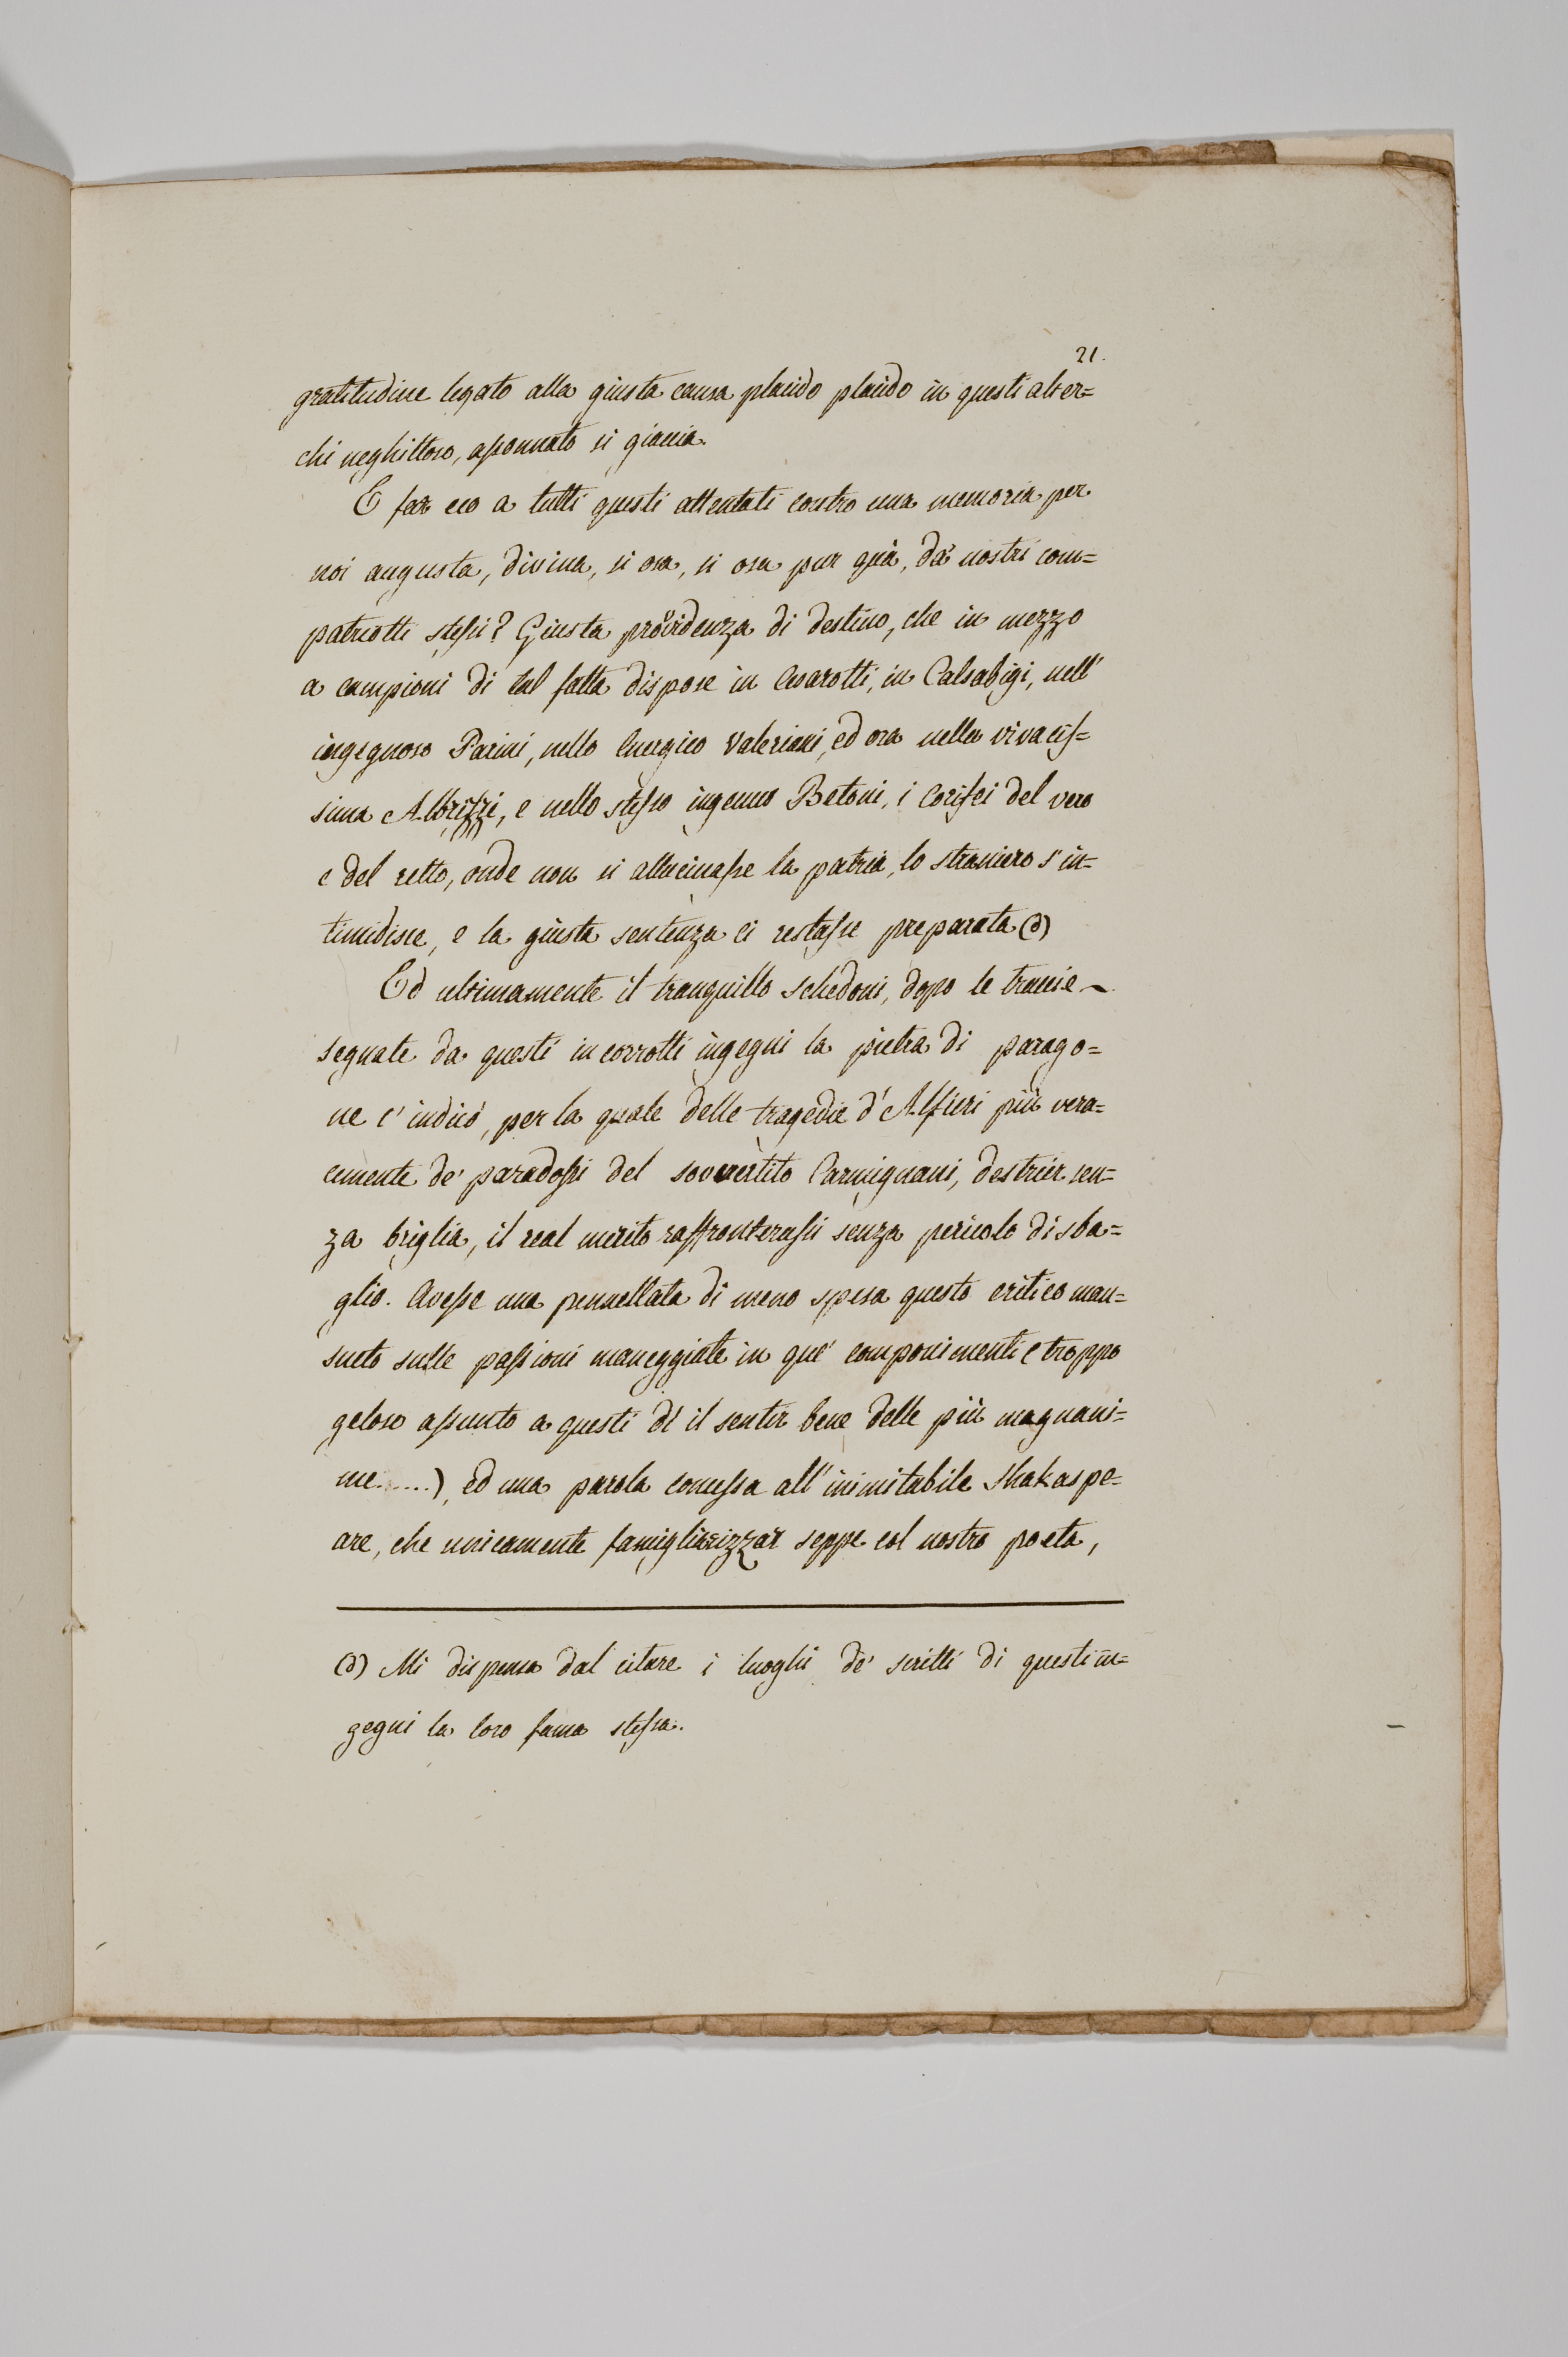 21.
gratitudine legato alla giusta causa placido placido in questi alter=
chi neghittoso, assonnato si giaccia.
E far eco a tutti questi attentati contro una memoria per
noi augusta, divina, si osa, si osa pur quà, da' nostri com=
patriotti stessi? Giusta providenza di destino, che in mezzo
a campioni di tal fatta dispose in Cesarotti, in Calsabigi, nell'
ingegnoso Parini, nello energico Valeriani, ed ora nella vivacis=
sima Albrizzi, e nello stesso ingenuo Betoni, i Corifei del vero
e del retto, onde non si allucinasse la patria, lo straniero s'in=
timidisce, e la giusta sentenza ci restasse preparata (d)
Ed ultimamente il tranquillo Schedoni, dopo le traccie
segnate da questi incorrotti ingegni la pietra di parago=
ne c'indicò, per la quale delle tragedie d'Alfieri più vera=
cemente de' paradossi del sovvertito Carmignani, destrier sen=
za briglia, il real merito raffronterassi senza pericolo di sba=
glio. Avesse una pennellata di meno spesa questo critico man=
sueto sulle passioni maneggiate in que' componimenti (troppo
geloso assunto a questi dì il sentir bene delle più magnani=
me......), ed una parola concessa all'inimitabile Shakaspe=
are, che unicamente famigliarizzar seppe col nostro poeta,
(d) Mi dispensa dal citare i luoghi de' scritti di questi in=
gegni la loro fama stessa.